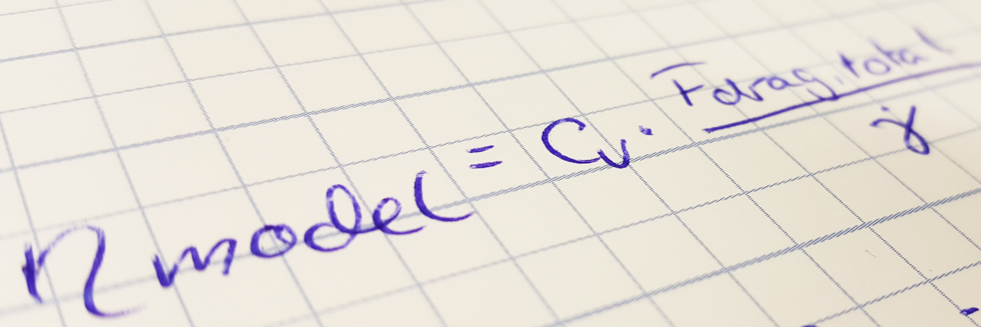 η model = Cv · F drag, total / γ̇